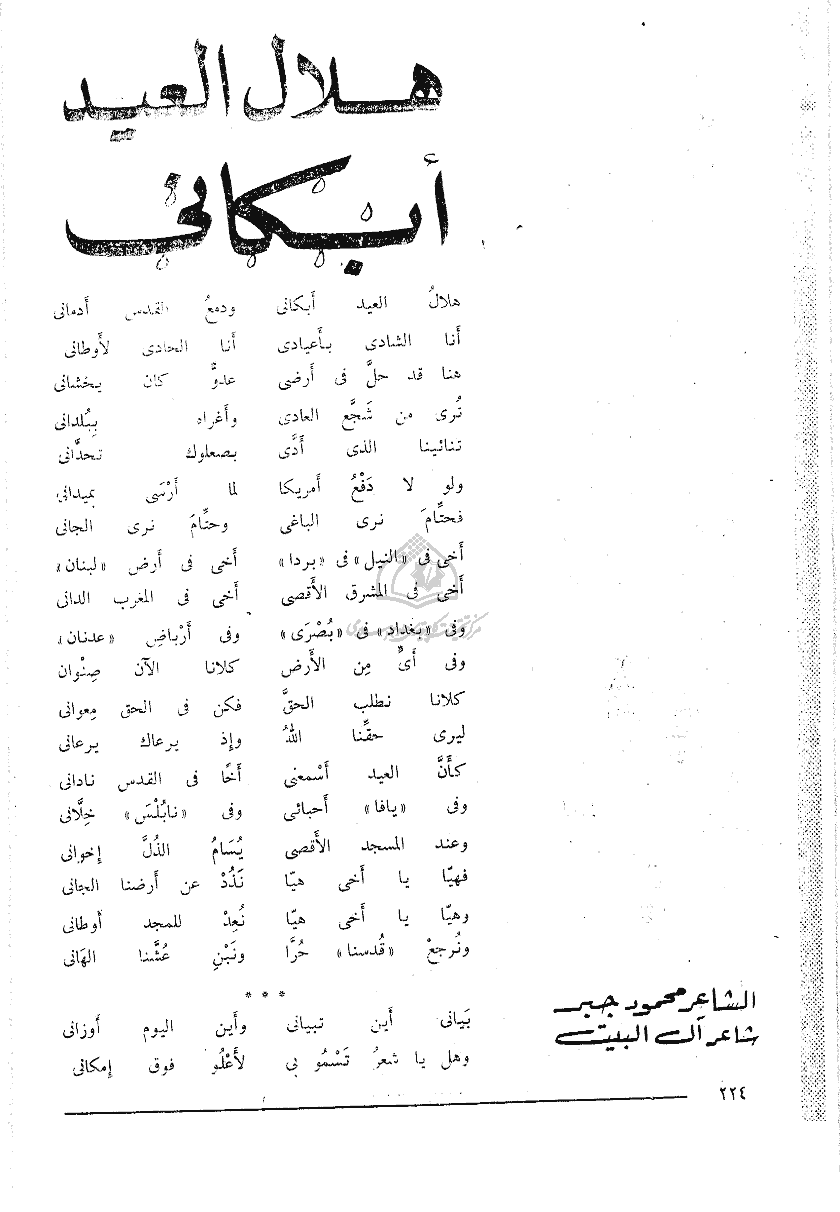 هـلال العيد
أبـكانى
هلالُ العيد أبكانى ودمعُ القدس أدمانى
أنا الشادى بأعيادى أنا الحادى لأوطانى
هنا قد حلَّ فى أرضى عدوٌّ كان يخشانى
تُرى من شَجَّع العادى وأغراه بِبُلدانى
تنائينا الذى أدَّى بصعلوك تحدَّانى
ولو لا دَفْعُ أمريكا لما أرْسَى بميدانى
فحتَّامَ نرى الباغى وحتَّامَ نرى الجانى
أخى فى «النيل» فى «بردا» أخى فى أرض «لبنان»
أخى فى المشرق الأقصى أخى فى المغرب الدانى
وفى «بغداد» فى «بُصْرَى» وفى أرْباضِ «عدنان»
وفى أىٍّ مِن الأرض كلانا الآن صِنْوان
كلانا نطلب الحقَّ فكن فى الحق مِعوانى
ليرى حقَّنا اللهُ وإذ يرعاك يرعانى
كأنَّ العيد أسْمعنى أخًا فى القدس نادانى
وفى «يافا» أحبائى وفى «نابُلْسَ» خِلَّانى
وعند المسجد الأقصى يُسَامُ الذُلَّ إخوانى
فهيّا يا أخى هيّا نَذُدْ عن أرضنا الجانى
وهيّا يا أخى هيّا نُعِدْ للمجد أوطانى
ونُرجعْ «قُدسنا» حُرًّا ونَبْنِ عُشَّنا الهَانى
* * *
بَيانى أين تبيانى وأين اليوم أوزانى
وهل يا شعرُ تَسْمُو بى لأعْلُو فوق إمكانى
الشاعر محمود جبر
شاعر آل البيت
٢٢٤